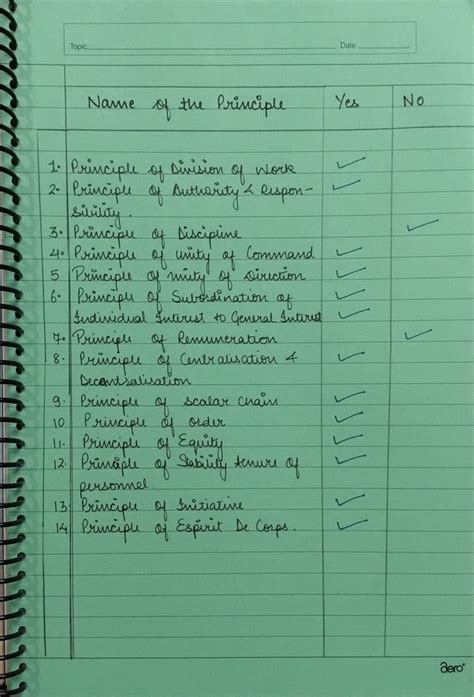 Topic Date
Name of the Principle Yes No
1. Principle of Division of Work ✓
2. Principle of Authority & Respon- ✓
sibility.
3. Principle of Discipline ✓
4. Principle of unity of Command ✓
5 Principle of unity of Direction ✓
6. Principle of Subordination of ✓
Individual Interest to General Interest ✓
7. Principle of Remuneration ✓
8. Principle of Centralisation & ✓
Decentralisation
9. Principle of Scalar Chain ✓
10 Principle of order ✓
11. Principle of Equity ✓
12. Principle of Stability tenure of ✓
personnel
13. Principle of Initiative ✓
14 Principle of Espirit De Corps. ✓
aero